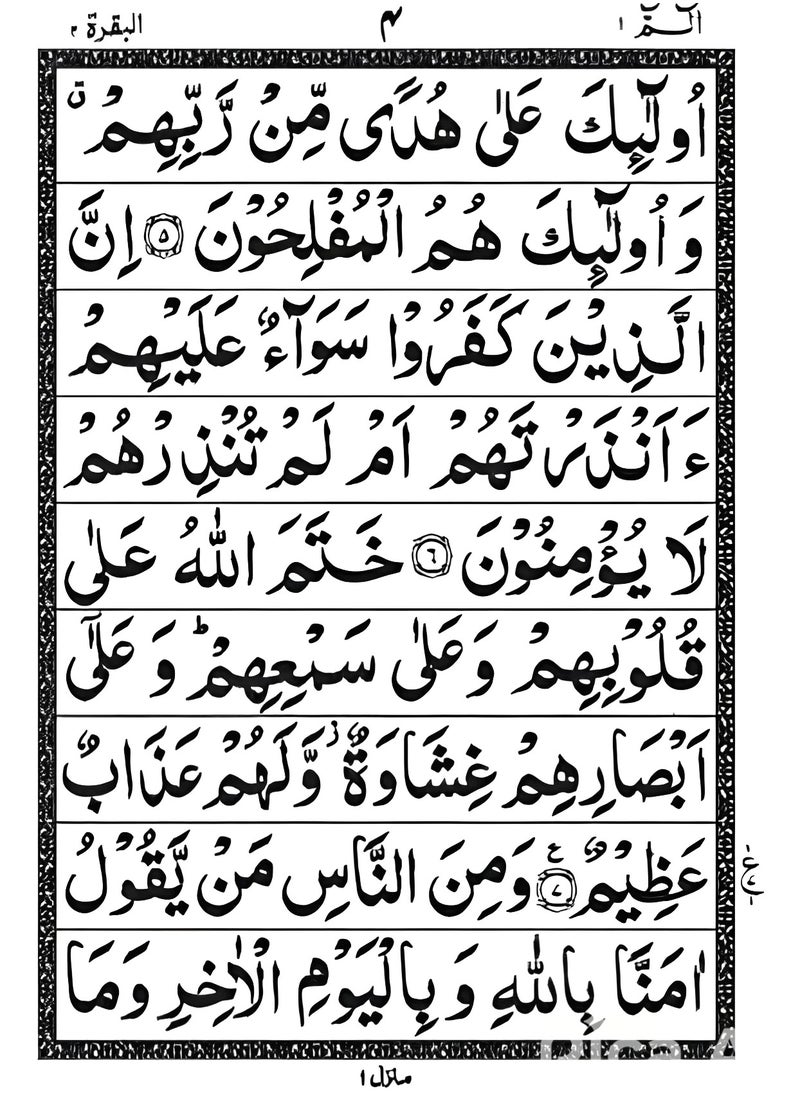 الٓـمّٓ ١ ٤ البقرة ٢
اُولٰٓئِكَ عَلٰى هُدًى مِّنْ رَّبِّهِمْ ۙ
وَ اُولٰٓئِكَ هُمُ الْمُفْلِحُوْنَ ٥ اِنَّ
الَّذِيْنَ كَفَرُوْا سَوَآءٌ عَلَيْهِمْ
ءَاَنْذَرْتَهُمْ اَمْ لَمْ تُنْذِرْهُمْ
لَا يُؤْمِنُوْنَ ٦ خَتَمَ اللّٰهُ عَلٰى
قُلُوْبِهِمْ وَعَلٰى سَمْعِهِمْ ؕ وَ عَلٰٓى
اَبْصَارِهِمْ غِشَاوَةٌ ؗ وَّلَهُمْ عَذَابٌ
عَظِيْمٌ ٧ ع وَمِنَ النَّاسِ مَنْ يَّقُوْلُ
اٰمَنَّا بِاللّٰهِ وَ بِالْيَوْمِ الْاٰخِرِ وَمَا
منزل ١